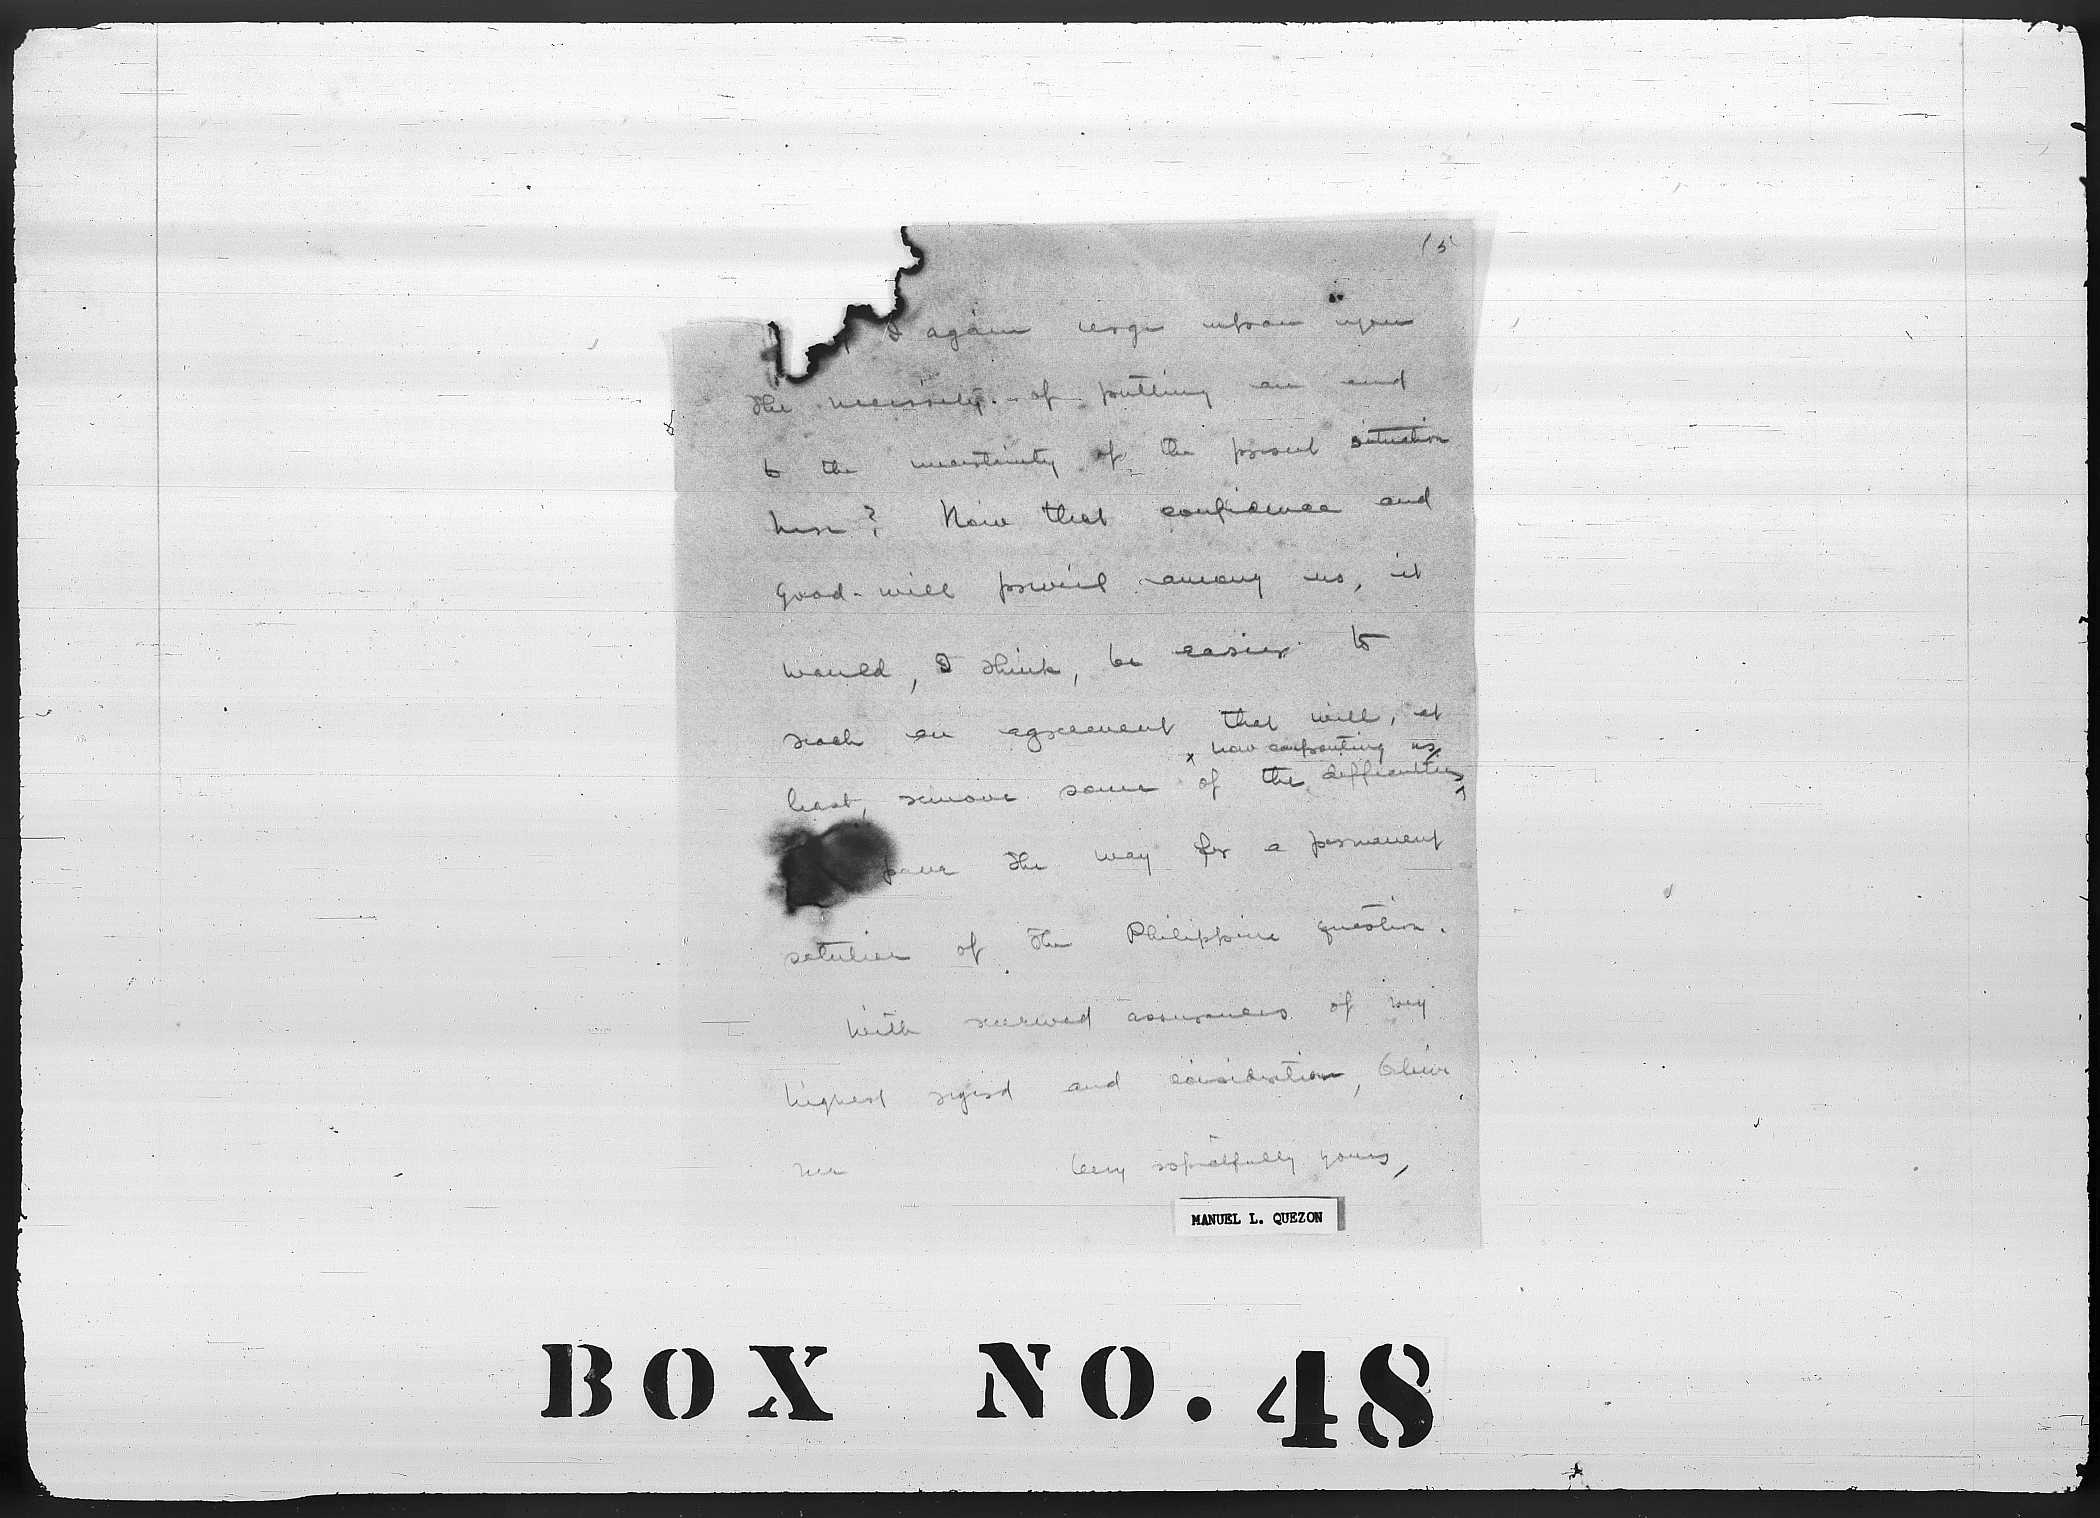 (5
I again urge upon you
the necessity of putting an end
to the uncertainty of the present situation
here? Now that confidence and
good-will prevail among us, it
would, I think, be easier to
reach an agreement that will, at
now confronting us
least, remove some of the difficulties
pave the way for a permanent
of the Philippine question.
With renewed assurances of my
highest regard and consideration, believe
me Very respectfully yours,
MANUEL L. QUEZON
BOX NO. 48